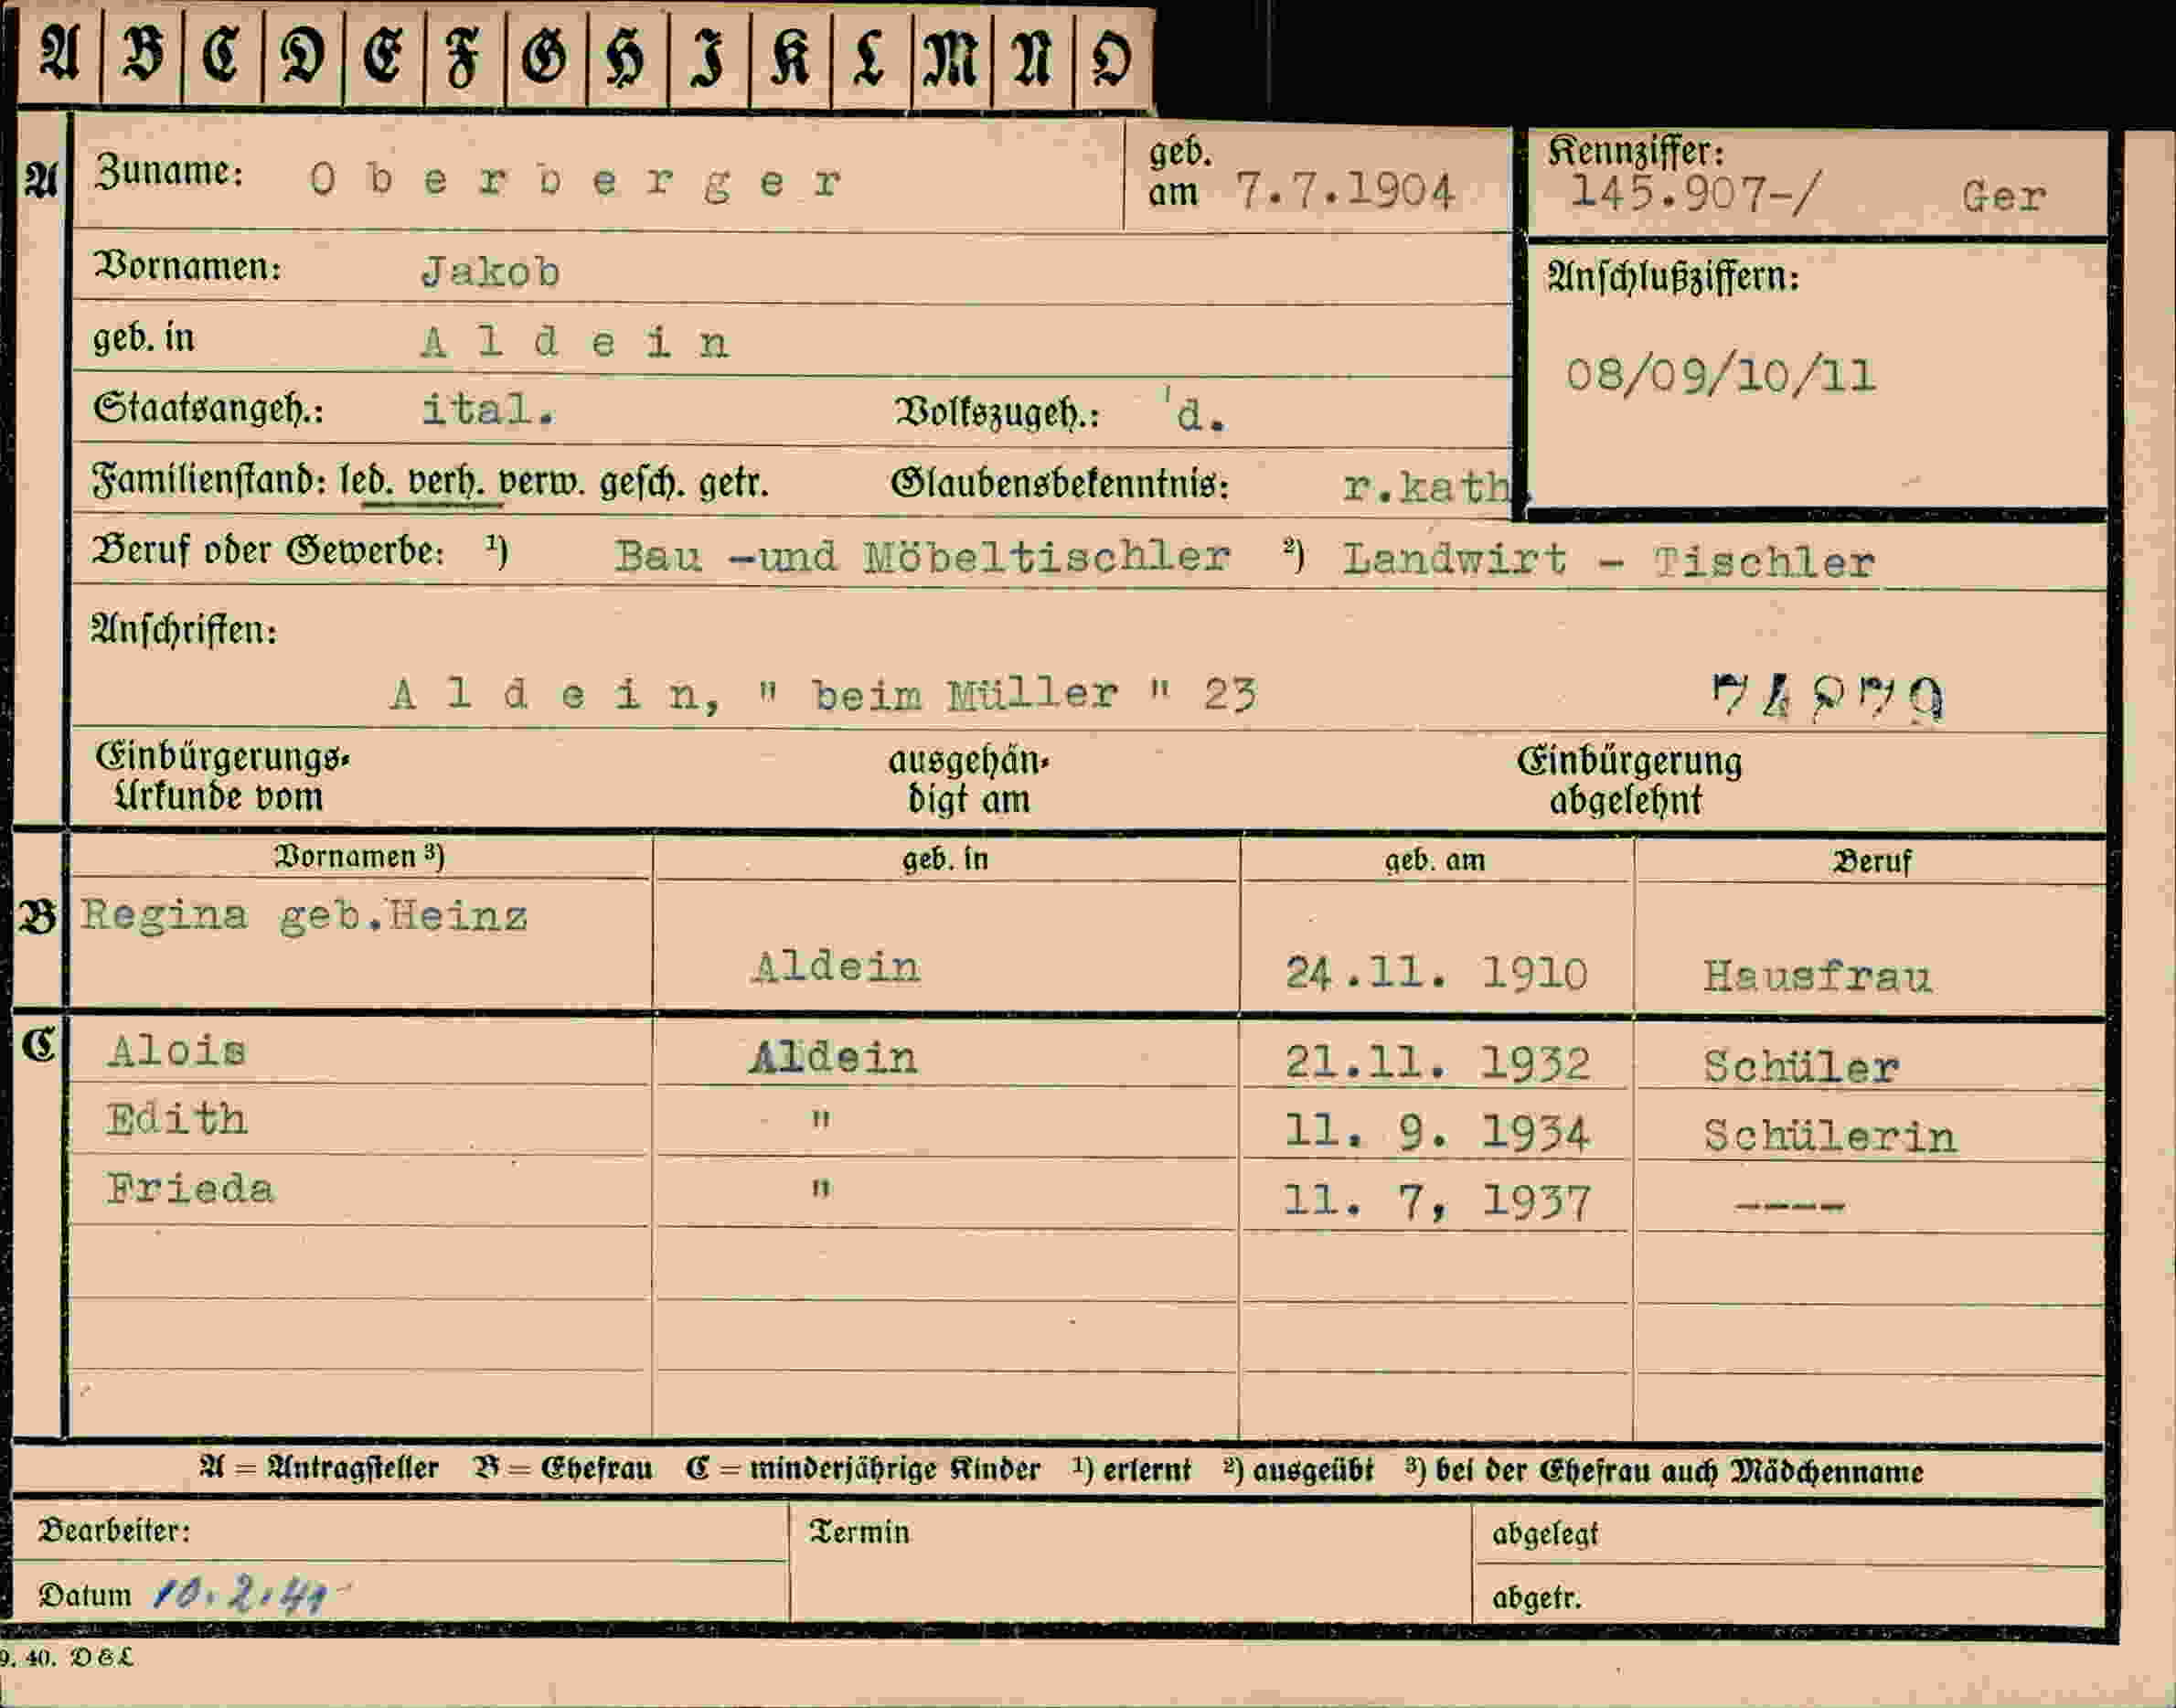 A B C D E F G H I K L M N O
A Zuname: Oberberger geb. am 7.7.1904 Kennziffer: 145.907-/ Ger
Vornamen: Jakob
Anschlußziffern:
geb. in Aldein
08/09/10/11
Staatsangeh.: ital. Volkszugeh.: d.
Familienstand: led. verh. verw. gesch. getr. Glaubensbekenntnis: r.kath.
Beruf oder Gewerbe: ¹) Bau -und Möbeltischler ²) Landwirt - Tischler
Anschriften:
Aldein, " beim Müller " 23
Einbürgerungs- ausgehän- Einbürgerung
Urkunde vom digt am abgelehnt
Vornamen ³) geb. in geb. am Beruf
B Regina geb.Heinz
Aldein 24.11. 1910 Hausfrau
C Alois Aldein 21.11. 1932 Schüler
Edith " 11. 9. 1934 Schülerin
Frieda " 11. 7, 1937 ----
A = Antragsteller B = Ehefrau C = minderjährige Kinder ¹) erlernt ²) ausgeübt ³) bei der Ehefrau auch Mädchenname
Bearbeiter: Termin abgelegt
Datum 10.2.41 abgetr.
9. 40. D&L